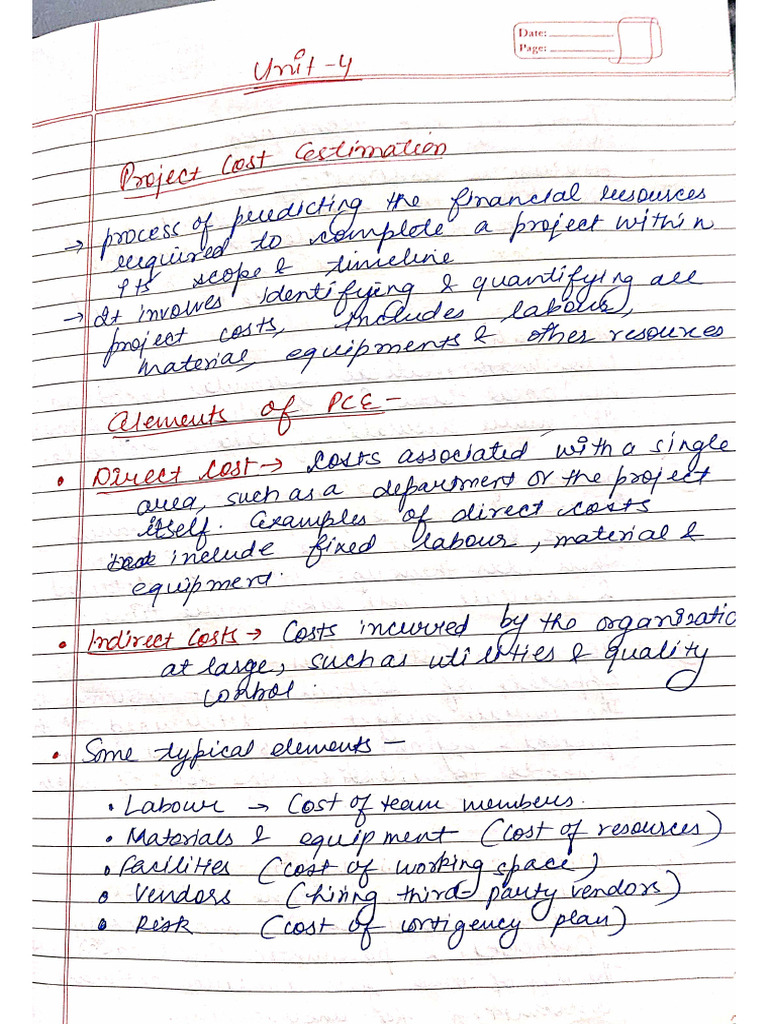 Date:
Page:
Unit-4
Project Cost Estimation
→ process of predicting the financial resources
required to complete a project within
its scope & timeline
→ It involves identifying & quantifying all
project costs, includes labour,
material, equipments & other resources
Elements of PCE -
• Direct Cost → Costs associated with a single
area, such as a department or the project
itself. Examples of direct costs
include fixed labour, material &
equipment.
• Indirect Costs → Costs incurred by the organizatio
at large, such as utilities & quality
control.
• Some typical elements -
• Labour → Cost of team members.
• Materials & equipment (cost of resources)
• Facilities (cost of working space)
• Vendors (hiring third-party vendors)
• Risk (cost of contigency plan)